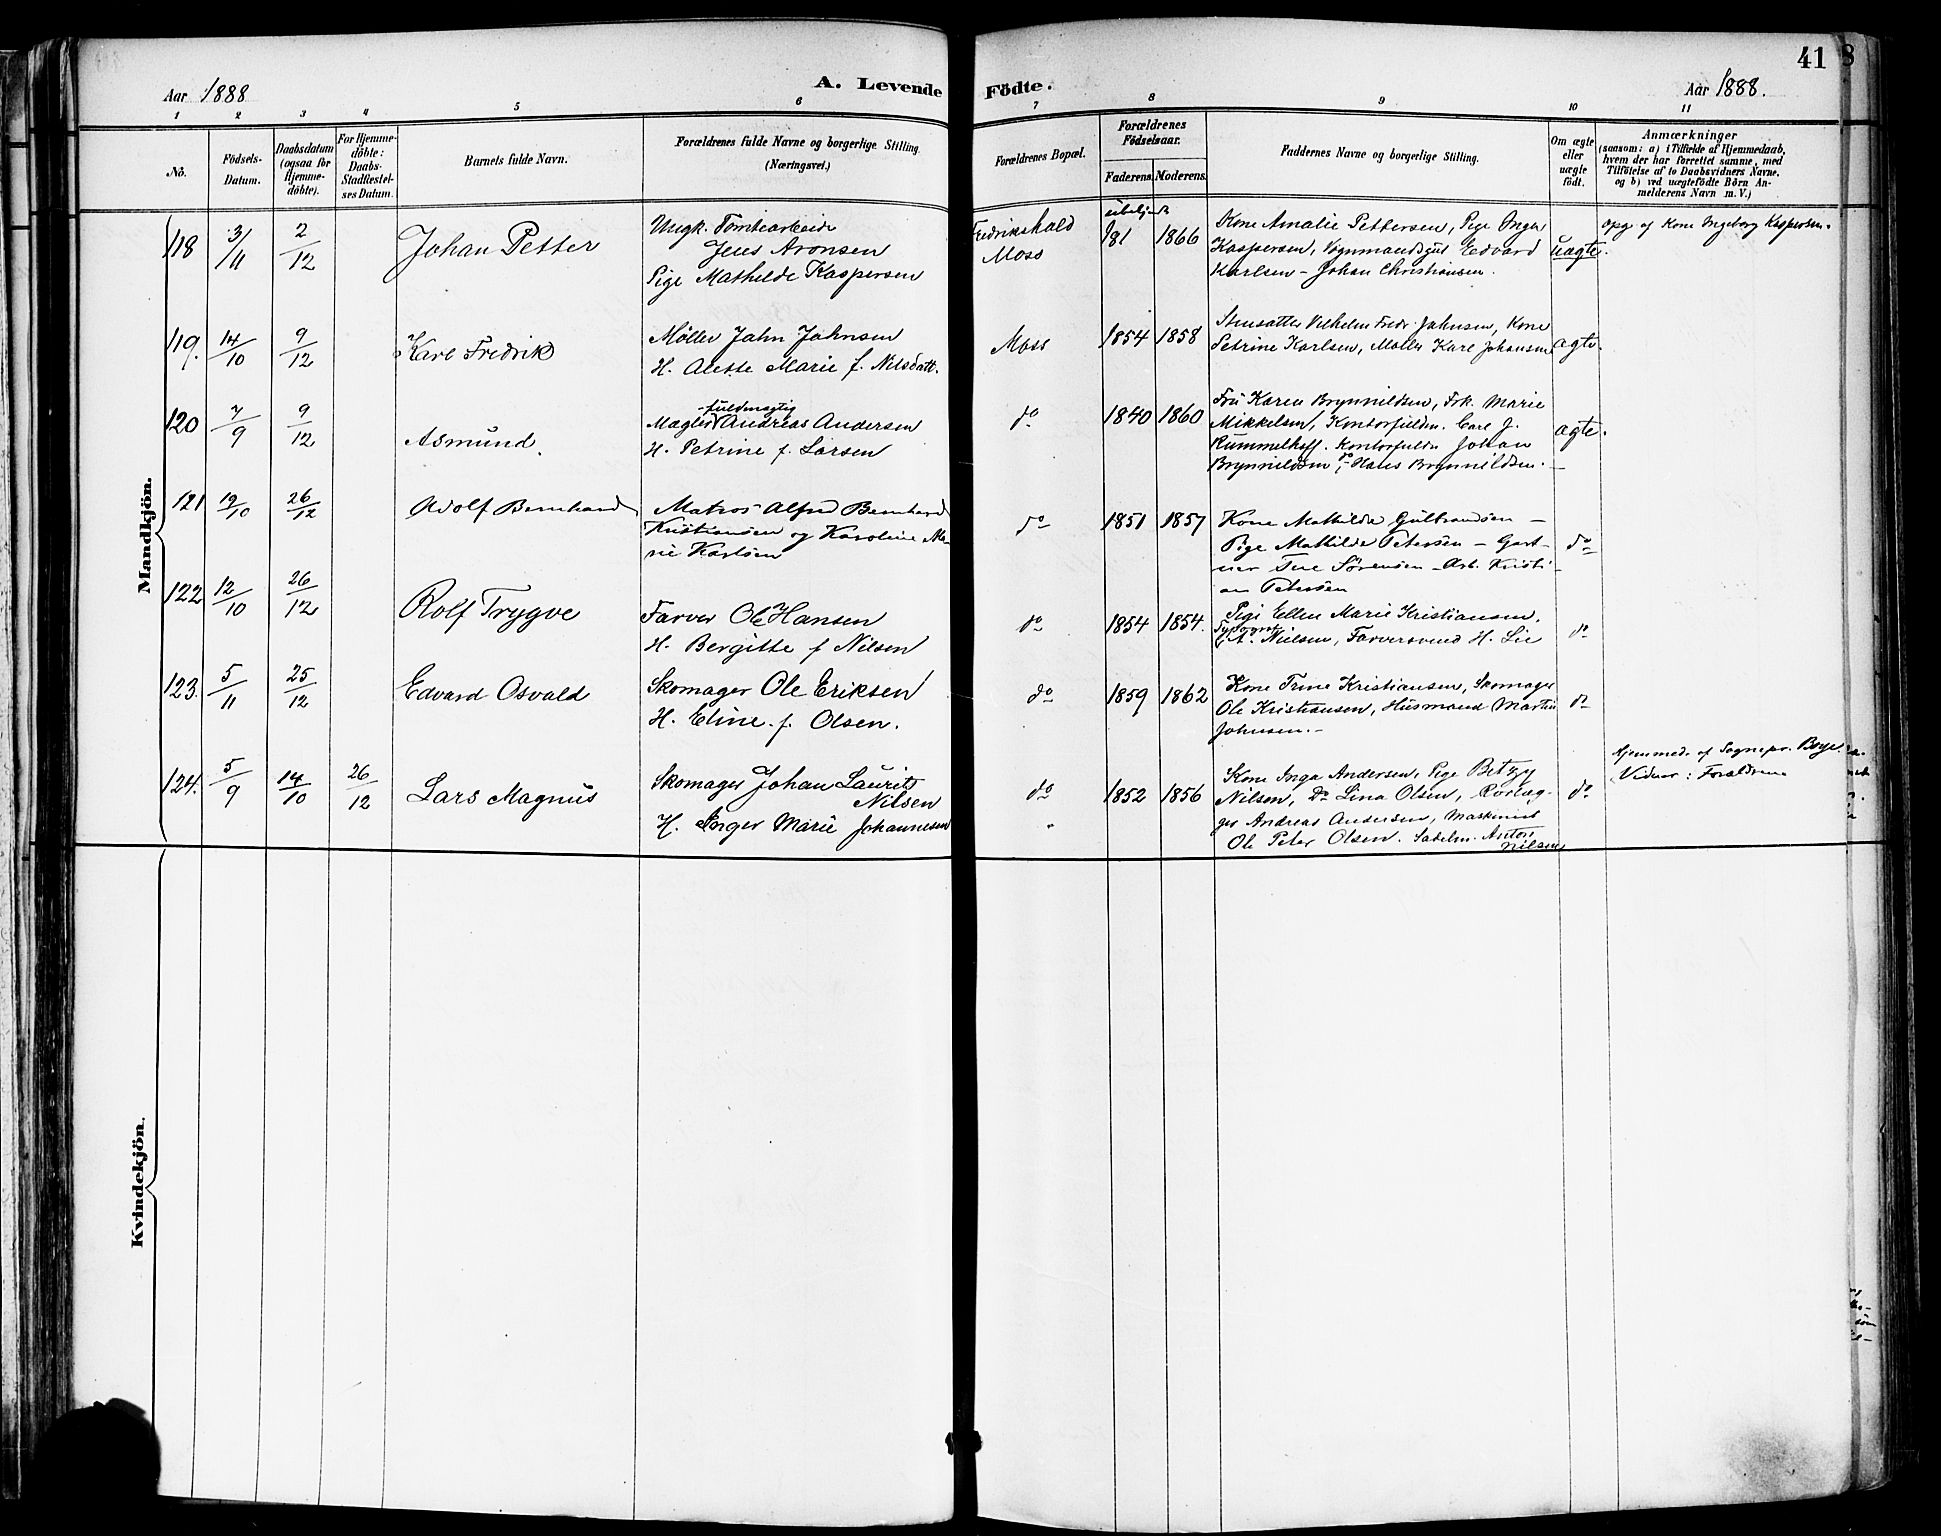 Aar 1888
A. Levende Födte.
Aar 1888.
41
8
1 2 3 4 5 6 7 8 9 10 11
No.
Födsels-
Datum.
Daabsdatum
(ogsaa for
Hjemme-
döbte).
For Hjemme-
döbte:
Daabs-
Stadfæstel-
ses Datum.
Barnets fulde Navn.
Forældrenes fulde Navne og borgerlige Stilling.
(Næringsvei.)
Forældrenes Bopæl.
Forældrenes
Födselsaar.
Faderens. Moderens.
Faddernes Navne og borgerlige Stilling.
Om ægte
eller
uægte
födt.
Anmærkninger
(saasom: a) i Tilfælde af Hjemmedaab,
hvem der har forrettet samme, med
Tilföielse af to Daabsvidners Navne,
og b) ved uægtefödte Börn An-
melderens Navn m. V.)
Mandkjön.
118 3/11 2/12
Johan Petter
Ungk. Tomtearbeide
Jens Aronsen
Pige Mathilde Kaspersen
Fredrikshald
Moss
181 1866
Kone Amalie Pettersen, Pige Inga
Kaspersen, Vognmandsgut Edvard
Karlsen - Johan Christiansen.
uægte.
opg. af Kone Ingeborg Kaspersen.
119. 14/10 9/12
Karl Fredrik
Møller John Johnsen
H. Alette Marie f. Nilsdatt.
Moss
1854 1858
Vilhelm Fredr. Johnsen, Kone
Petrine Karlsen, Møller Karl Johansen
ægte.
120 7/9 9/12
Asmund.
fuldmægtig
Mægler Andreas Andersen
H. Petrine f. Larsen
do
1840 1860
Fru Karen Brynnildsen, Frk. Marie
Mikkelsen, Kontorfuldm. Carl J.
Rummelhoff. Kontorfuldm Johan
Brynnildsen, do Hans Brynnildsen.
ægte.
121 12/10 26/12
Adolf Bernhard
Matros Alfred Bernhard
Kristiansen og Karoline Ma-
rie Karlsen
do
1851 1857
Kone Mathilde Gulbrandsen -
Pige Mathilde Petersen - Gart-
ner Sørensen - Arb. Kristi-
an Petersen
do
122 12/10 26/12
Rolf Trygve
Farver Ole Hansen
H. Bergitte f Nilsen
do
1854 1854.
Pige Ellen Marie Kristiansen,
Typograf
A. Nielsen, Farversvend H. Lie
do
123. 5/11 25/12
Edvard Osvald
Skomager Ole Eriksen
H. Eline f. Olsen.
do
1859 1862
Kone Trine Kristiansen, Skomager
Ole Kristiansen, Husmand Martin
Johnsen.-
do
124. 5/9 14/10 26/12
Lars Magnus
Skomager Johan Laurits
Nilsen
H. Inger Marie Johannesen
do
"
1852 1856
Kone Inga Andersen, Pige Betzy
Nilsen, Do Lina Olsen, Rørlæg-
ger Andreas Andersen, Maskinist
Ole Peter Olsen. Sadelm. Anton
Nilsen
do
Hjemmed. af Sognepr. Borge.
Vidner: Forældrene
Kvindekjön.